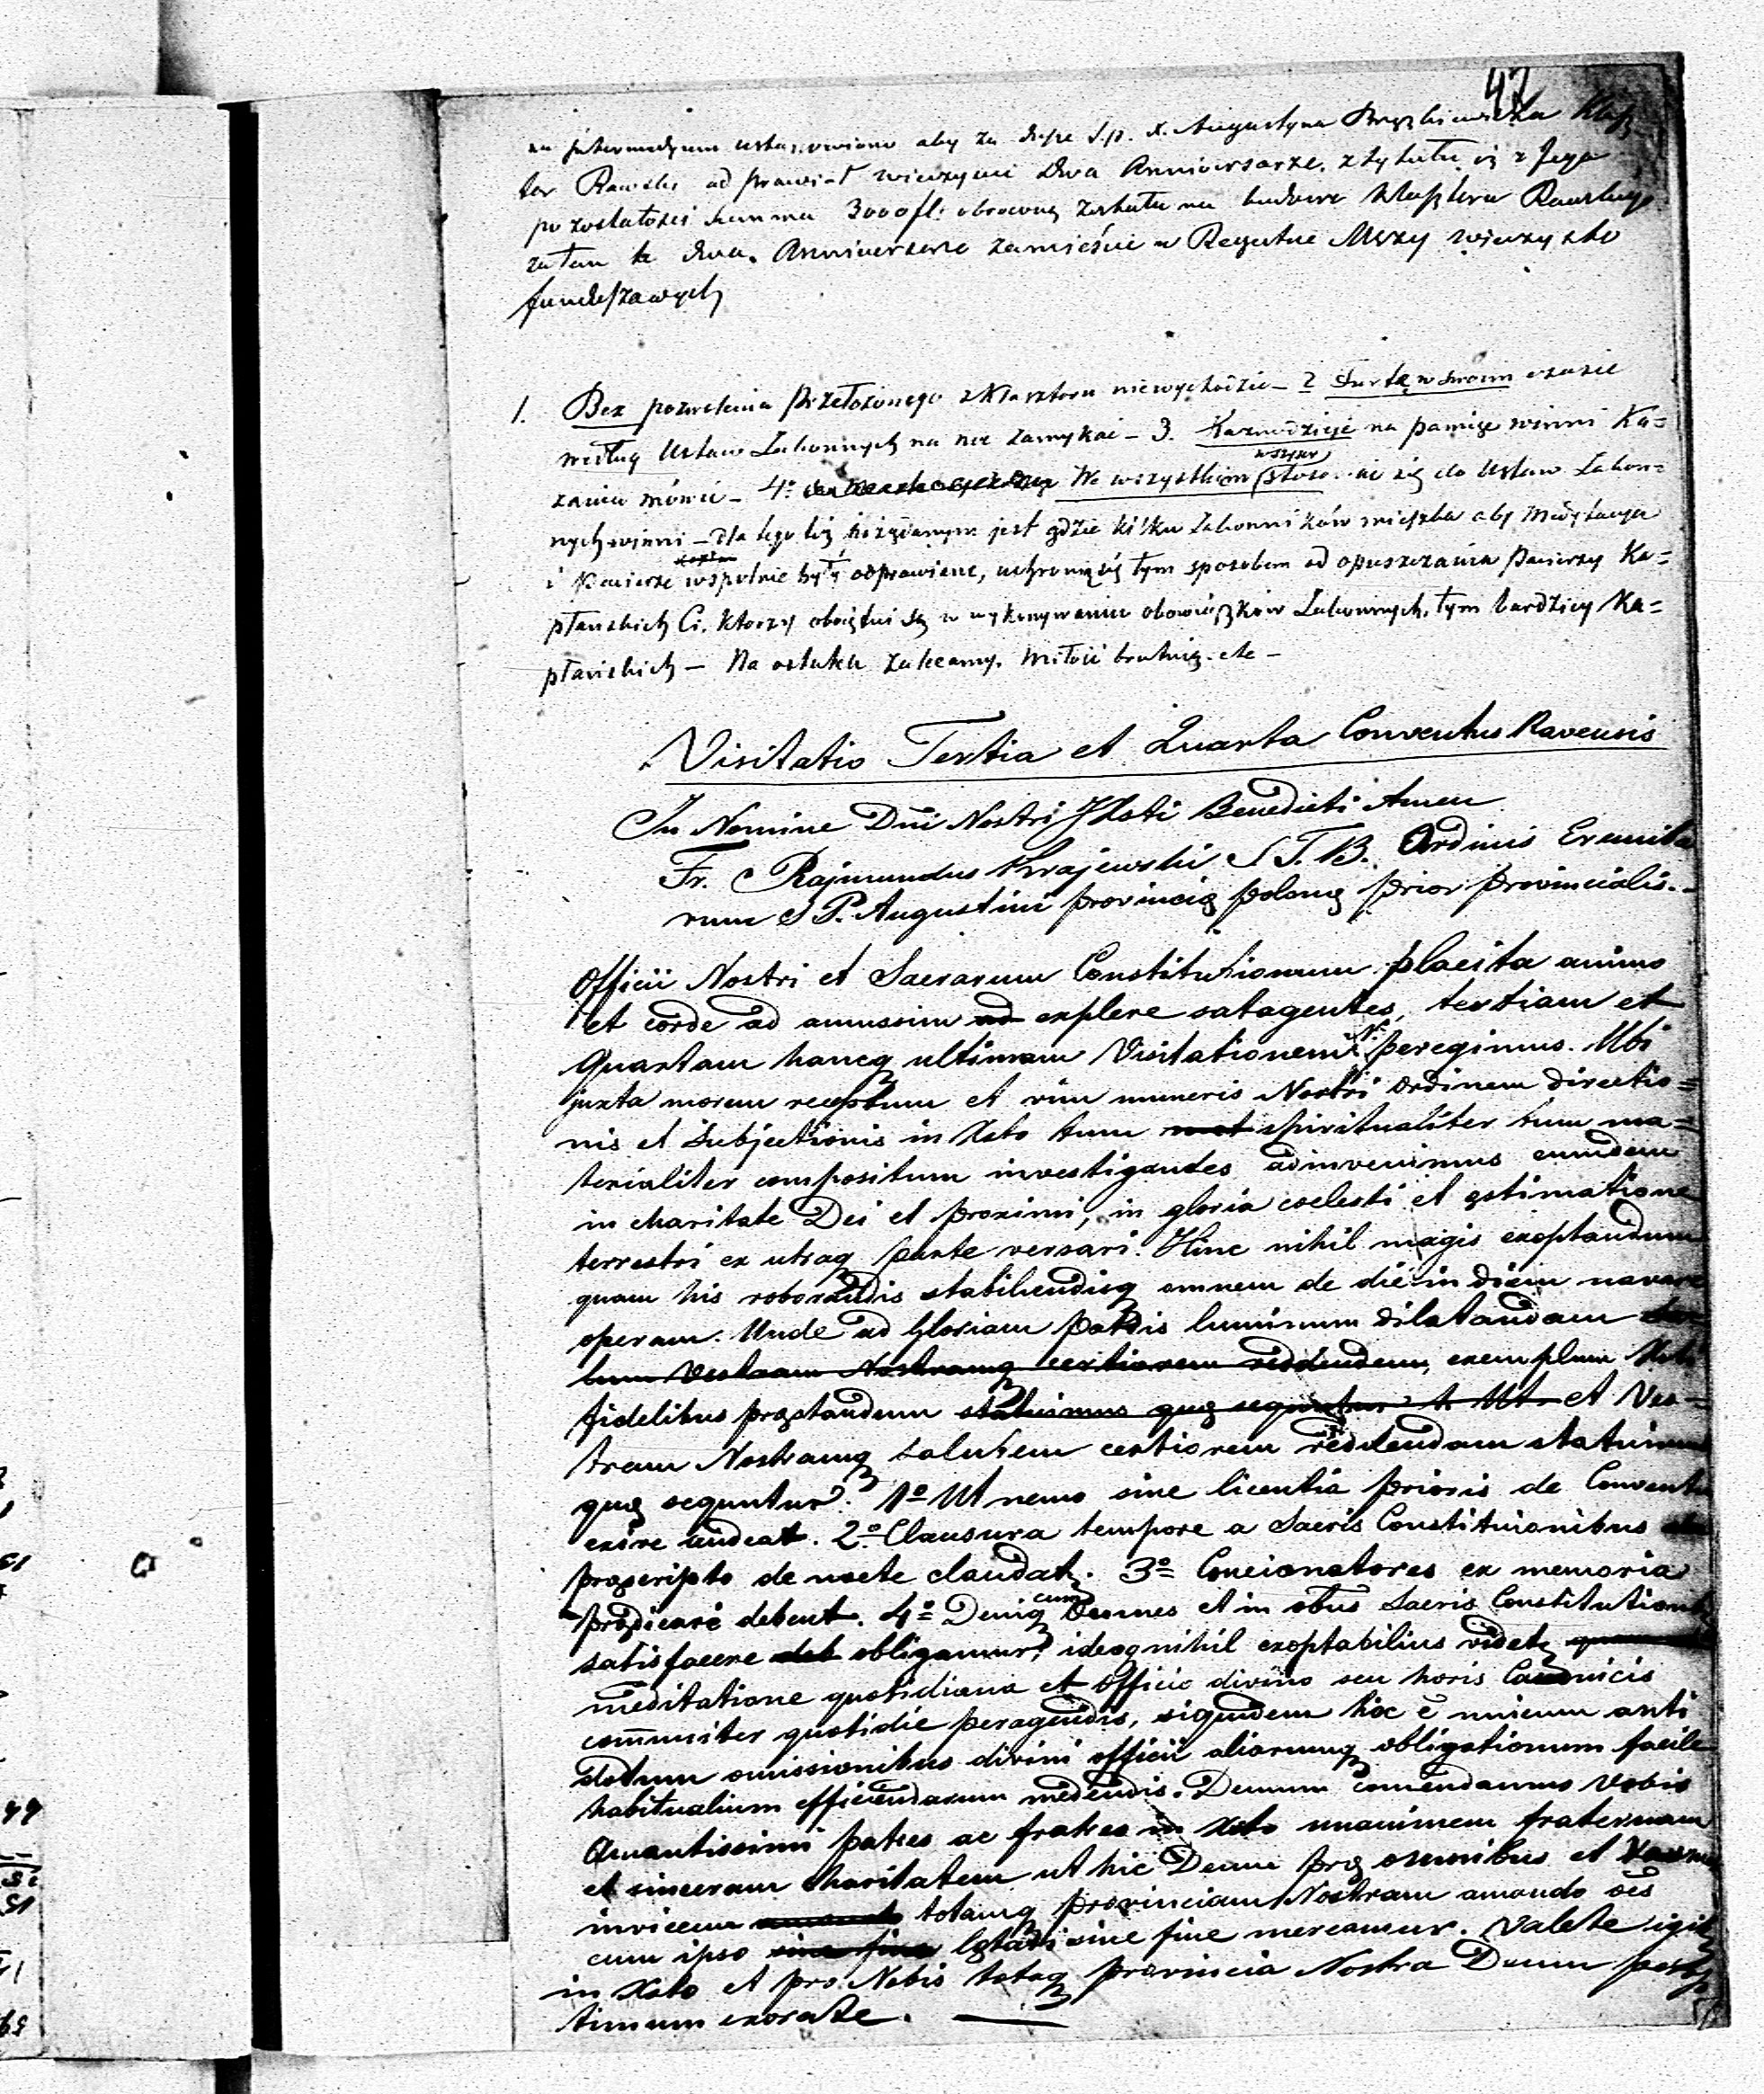 42
na intermedyum ustanowiono aby za duszę ś.p. X. Augustyna Klasz-
tor Rawski odprawiał wieczyści dwa Anniversarze, z tytułu iż z Jego
pozostałości summa 3000 fl: obrócona została na budowę Klasztoru Rawskiego
zatem te dwa Anniversarze zamieścić w Regestrze Mszy wieczysto
funduszowych
1. Bez pozwolenia Przełożonego z Klasztoru niewychodzić – 2 Furtę w swoim czasie
według Ustaw Zakonnych na noc zamykać – 3. Kaznodzieje na pamięć winni Ka=
zania mówić – 4º We wszystkim wszyscy stosować się do Ustaw Zakon=
nych winni – Dla tego też pożądanym jest gdzie kilku Zakonników mieszka aby Medytacya
i Pacierze wspólnie były odprawiane, uchronią się tym sposobem od opuszczania Pacierzy Ka=
płańskich Ci, którzy obojętni są w wykonywaniu obowiązków Zakonnych, tym bardziey Ka=
płańskich – Na ostatek zalecamy miłość bratnią etc –
Visitatio Tertia et Quarta Conventus Ravensis
In Nomine Dni Nostri JXsti Benedicti Amen
Fr. Rajmundus Krajewski S.T.B. Ordinis Eremita
rum S P. Augustini provincię polonę prior provincialis.
Officii Nostri et Sacrarum Constitutionum placita animo
et corde ad amussim ad explere satagentes, tertiam et
quartam hancq ultimam Visitationem N. peregimus. Ubi
juxta morem receptum et vim muneris Nostri ordinem directio=
nis et subjectionis in Xsto tum spiritualiter tum ma=
terialiter compositum investigandes adinvenimus eumdem
in charitate Dei et proximi, in gloria coelesti et ęstimatione
terrestri ex utraq parte versari. Hinc nihil magis exoptandum
quam his roborandis stabiliendisq omnem de die in diem navare
operam. Unde ad Gloriam patris luminum dilatandam
tum Vestram Nostramq certiorem reddendum, exemplum Xsti
fidelibus pręstandum statuimus quę sequntur 1. Ut et Ves=
tram Nostramq salutem certiorem reddendam statuimus
quę sequntur. 1º Ut nemo sine licentia prioris de Conventu
exire audeat. 2º Clausura tempore a Sacris Constitutionibus
pręscripto de nocte claudat. 3º Concionatores ex memoria
prędicare debent. 4º Deniq cum omnes et in obus Sacris Constitutionib
satisfacere deb obligamur, ideoq nihil exoptabilius videt
meditatione quotidiana et officio divino seu horis Canonicis
communiter quotidie peragendis, siquidem hoc e unicum anti
dotum omissionibus divini officii aliarumq obligationum facile
habitualium efficiendarum medendis. Demum comendamus Vobis
Amantissimi patres ac fratres in Xsto unanimem fraternam
et sinceram charitatem ut hic Deum prę omnibus et
invicem totamq provinciam Nostram amando oes
cum ipso sine fine lętari sine fine mereamur. Valete igit
in Xsto et pro Nobis totaq provincia Nostra Deum
timum exorate. —